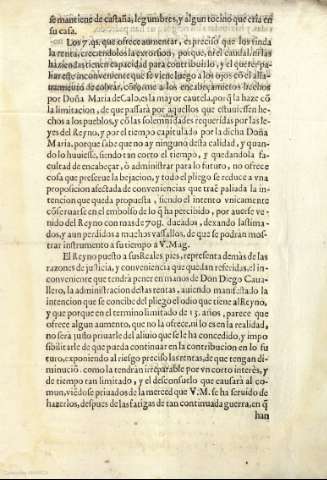 se mantiene de castaña, legumbres, y algun tocino que cria en
su casa.
Los 7. qs. que ofrece aumentar, es preciso que los rinda
la renta, creciendolos la extorsion, porque, ni el caudal, ni las
haziendas tienen capacidad para contribuirlo, y el querer pa-
liar este inconveniente que se viene luego a los ojos cõ el alla-
namiento de cobrar, cõforme a los encabeçamientos hechos
por Doña Maria de Caldos es la mayor cautela, porq̃ la haze cõ
la limitacion, de que passarà por aquellos que estuuiessen he-
chos a los pueblos, y cõ las solemnidades requeridas por las le-
yes del Reyno, y por el tiempo capitulado por la dicha Doña
Maria, porque sabe que no ay ninguno desta calidad, y quan-
do lo huuiesse, siendo tan corto el tiempo, y quedandola fa-
cultad de encabeçar, ò administrar para lo futuro, no ofrece
cosa que preserue la bejacion, y todo el pliego se reduce a vna
proposicion afectada de conveniencias que traè paliada la in-
tencion que queda propuesta, siendo el intento vnicamente
cõseruarse en el embolso de lo q̃ ha percibido, por auerse ve-
nido del Reyno con mas de 70U. ducados, dexando lastima-
dos, y aun perdidos a muchos vassallos, de que se podràn mos-
trar instrumento a su tiempo a V. Mag.
El Reyno puesto a sus Reales pies, representa demàs de las
razones de justicia, y conveniencia que quedan referidas, el in-
conveniente que tendrà poner en manos de Don Diego Caua-
llero, la administracion destas rentas, auiendo manifestado la
intencion que se concibe del pliego el odio que tiene al Reyno,
y que porque en el termino limitado de 13. años, parece que
ofrece algun aumento, que no la ofrece, ni lo es en la realidad,
no serà justo priuarle del aliuio que se le ha concedido, y impo
sibilitarle de que pueda continuar en la contribucion en lo fu
turo, exponiendo al riesgo preciso las rentas, de que tengan di-
minuciõ. como la tendràn irreparable por vn corto interès, y
de tiempo tan limitado, y el desconsuelo que causarà al co-
mun, viẽdose priuados de la merced que V. M. se ha seruido de
hazerlos, despues de las fatigas de tan continuada guerra, en q̃
han